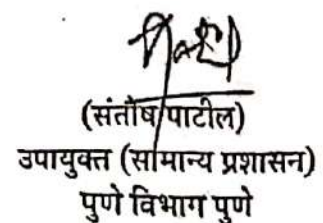 (संतोष पाटील)
उपायुक्त (सामान्य प्रशासन)
पुणे विभाग पुणे